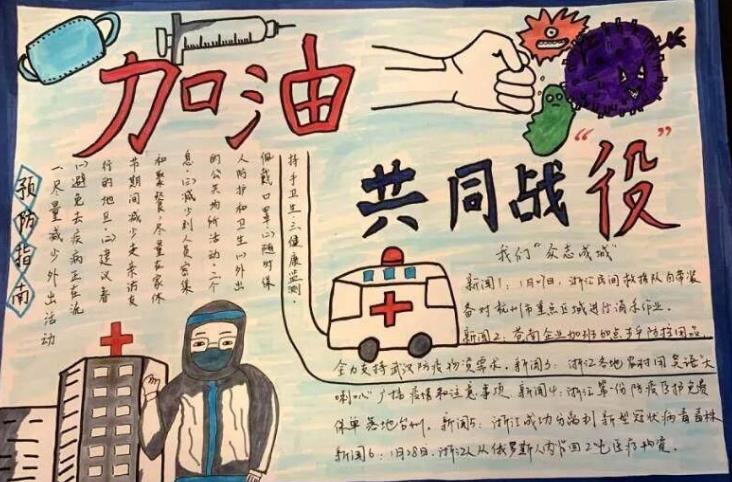 加油
共同战“役”
预防指南
一、尽量减少外出活动
(1)避免去疾病正在流
行的地区。(2)建议春
节期间减少走亲访友
和聚餐,尽量在家休
息。(3)减少到人员密集
的公共场所活动。二、个
人防护和卫生(1)外出
佩戴口罩(2)随时保
持手卫生三、健康监测。
我们“众志成城”
新闻1:1月27日,浙江民间救援队自带装
备对杭州市重点区域进行消杀作业。
新闻2、苍南企业加班加点生产防护用品,
全力支持武汉防疫物资需求。新闻3:浙江各地农村用
喇叭广播疫情和注意事项。新闻4:浙江首份防疫医护免费
保单落地台州。新闻5:浙江成功分离到新型冠状病毒毒株
新闻6:1月28日,浙江人从俄罗斯人肉背回